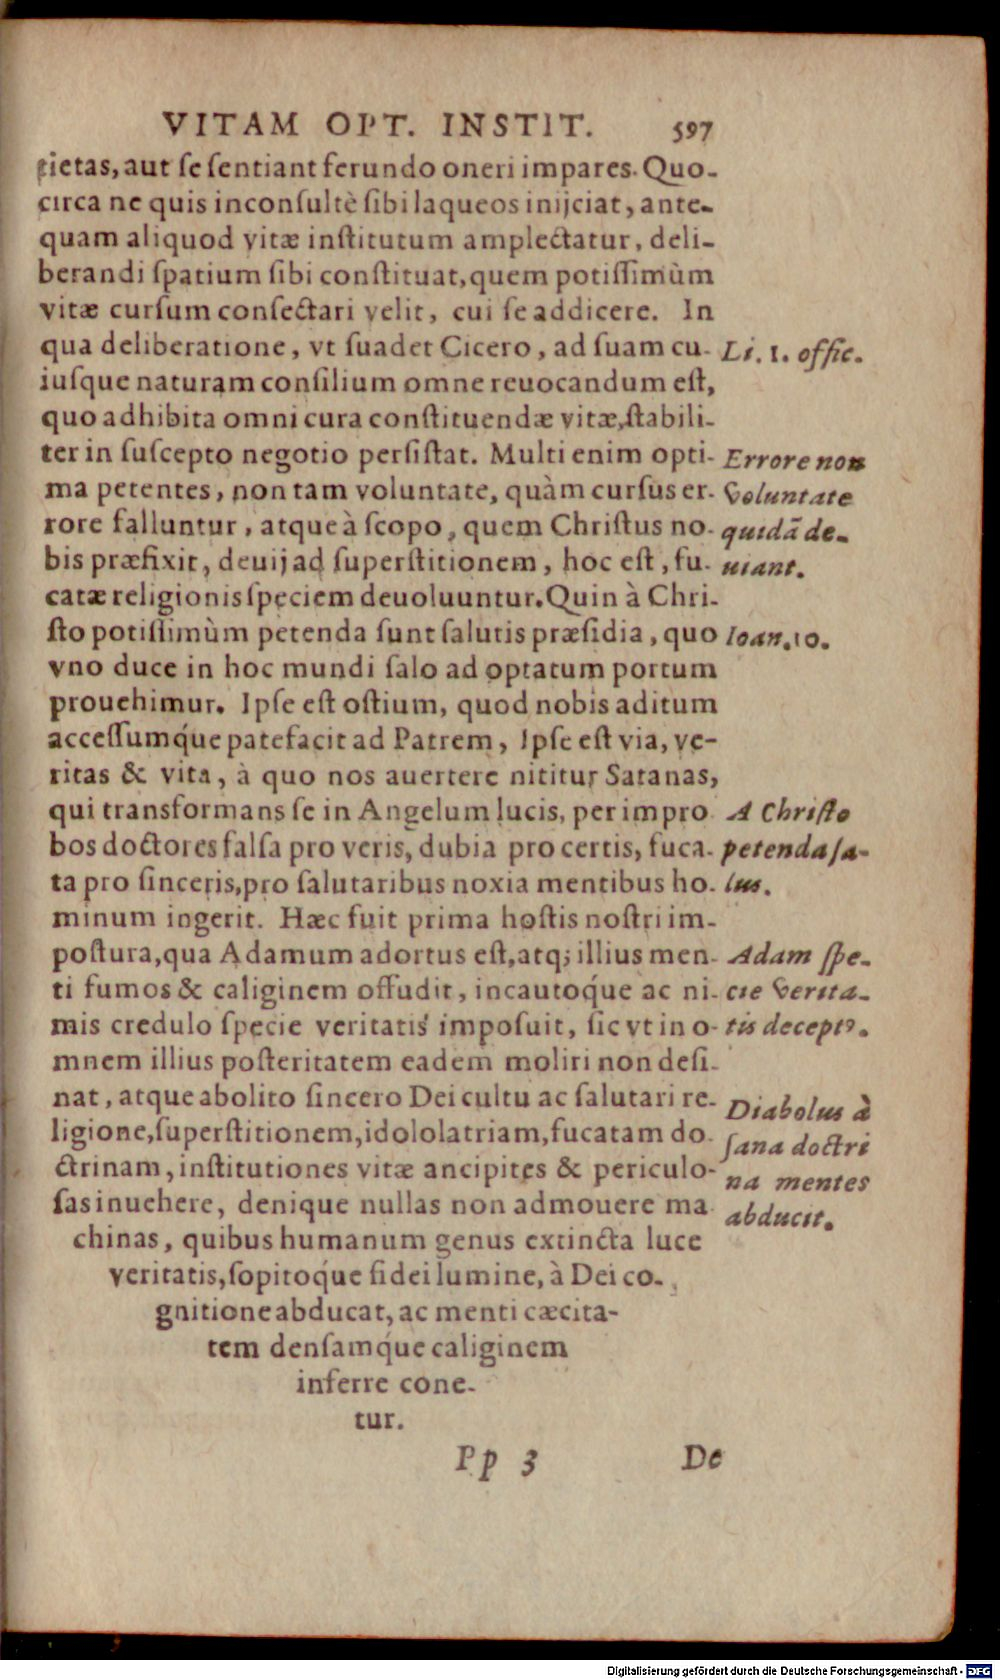 VITAM OPT. INSTIT. 597
tietas, aut se sentiant ferundo oneri impares. Quo-
circa ne quis inconsultè sibi laqueos inijciat, ante-
quam aliquod vitæ institutum amplectatur, deli-
berandi spatium sibi constituat, quem potissimùm
vitæ cursum consectari velit, cui se addicere. In
qua deliberatione, vt suadet Cicero, ad suam cu-
Li. 1. offic.
iusque naturam consilium omne reuocandum est,
quo adhibita omni cura constituendæ vitæ, stabili-
ter in suscepto negotio persistat. Multi enim opti-
Errore non
ma petentes, non tam voluntate, quàm cursus er-
voluntate
rore falluntur, atque à scopo, quem Christus no-
quidã de-
bis præfixit, deuij ad superstitionem, hoc est, fu-
uiant.
catæ religionis speciem deuoluuntur. Quin à Chri-
sto potissimùm petenda sunt salutis præsidia, quo
Ioan. 10.
vno duce in hoc mundi salo ad optatum portum
prouehimur. Ipse est ostium, quod nobis aditum
accessumq́ue patefacit ad Patrem, Ipse est via, ve-
ritas & vita, à quo nos auertere nititur Satanas,
qui transformans se in Angelum lucis, per impro
A Christo
bos doctores falsa pro veris, dubia pro certis, fuca-
petenda sa-
ta pro sinceris, pro salutaribus noxia mentibus ho-
lus.
minum ingerit. Hæc fuit prima hostis nostri im-
postura, qua Adamum adortus est, atq; illius men-
Adam spe-
ti fumos & caliginem offudit, incautoq́ue ac ni-
cie verita-
mis credulo specie veritatis imposuit, sic vt in o-
tis deceptꝰ.
mnem illius posteritatem eadem moliri non desi-
nat, atque abolito sincero Dei cultu ac salutari re-
Diabolus à
ligione, superstitionem, idololatriam, fucatam do-
sana doctri
ctrinam, institutiones vitæ ancipites & periculo-
na mentes
sas inuehere, denique nullas non admouere ma
abducit.
chinas, quibus humanum genus extincta luce
veritatis, sopitoq́ue fidei lumine, à Dei co-
gnitione abducat, ac menti cæcita-
tem densamq́ue caliginem
inferre cone-
tur.
Pp 3 De
Digitalisierung gefördert durch die Deutsche Forschungsgemeinschaft - DFG